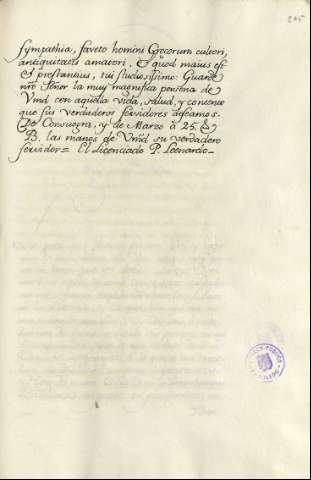 205
sympathia, faveto homini Grecorum cultori,
antiquitatis amatori, & quod maius est
& prestantius, tui studiosissimo: Guarde
nro Señor la muy magnifica persona de
Vmd con aquella vida, salud, y contento
que sus verdaderos servidores deseamos.
De Consuegra, y de Marzo à 25. &
B. las manos de Vmd su verdadero
servidor = El Licenciado P. Leonardo_